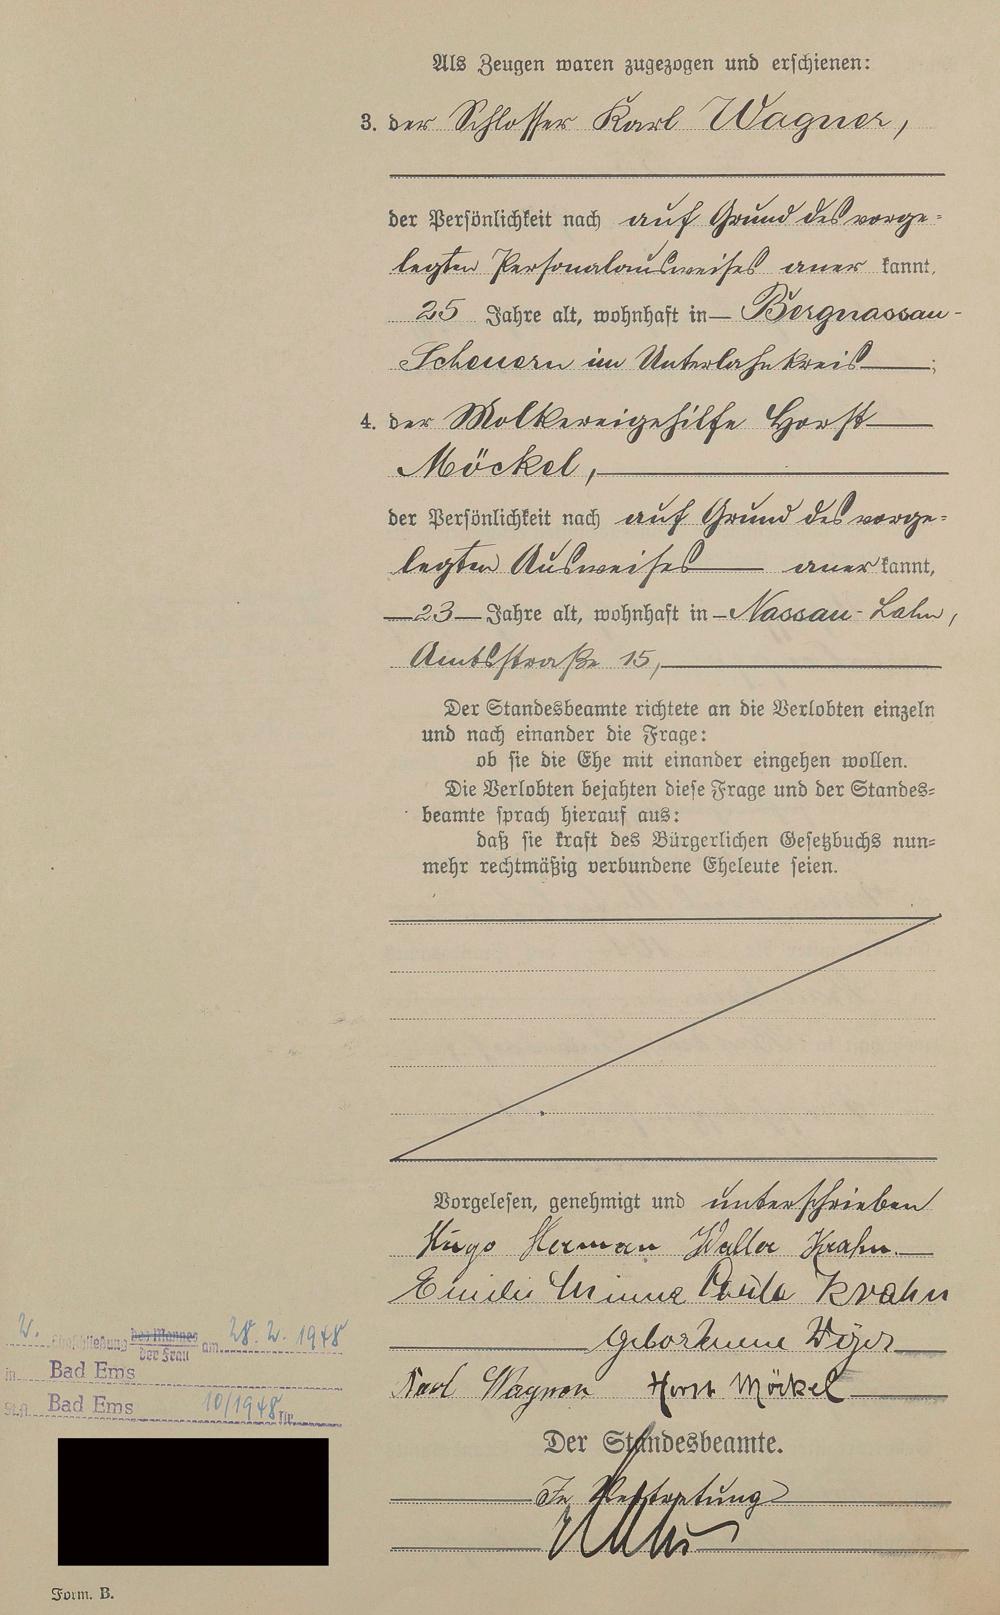 Als Zeugen waren zugezogen und erschienen:
3. der Schlosser Karl Wagner,
der Persönlichkeit nach auf Grund des vorge-
legten Personalausweises aner kannt,
25 Jahre alt, wohnhaft in Bergnassau-
Scheuern im Unterlahnkreis ;
4. der Molkereigehilfe Horst
Möckel,
der Persönlichkeit nach auf Grund des vorge-
legten Ausweises aner kannt,
23 Jahre alt, wohnhaft in Nassau-Lahn,
Amtsstraße 15,
Der Standesbeamte richtete an die Verlobten einzeln
und nach einander die Frage:
ob sie die Ehe mit einander eingehen wollen.
Die Verlobten bejahten diese Frage und der Standes-
beamte sprach hierauf aus:
daß sie kraft des Bürgerlichen Gesetzbuchs nun-
mehr rechtmäßig verbundene Eheleute seien.
Vorgelesen, genehmigt und unterschrieben
Hugo Herman Walter Krahn.
Emilie Minna Paula Krahn
geborenene
Karl Wagner Horst Möckel
Der Standesbeamte.
In Vertretung
2. Eheschließung des Mannes der Frau am 28. 2. 1948
in Bad Ems
St.A. Bad Ems 10/1948 Nr.
Form. B.